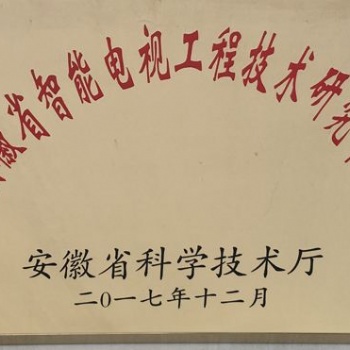 徽省智能电视工程技术研究
安徽省科学技术厅
二〇一七年十二月